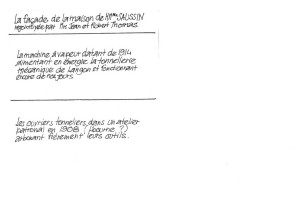 La façade de la maison de Mme SAUSSIN
par Mrs Jean et Robert Thomas
La machine à vapeur datant de 1914
alimentant en énergie la tonnellerie
mécanique de Langon et fonctionnant
encore de nos jours
Les ouvriers tonneliers dans un atelier
patronal en 1908 (Libourne ?)
arborant fièrement leurs outils.